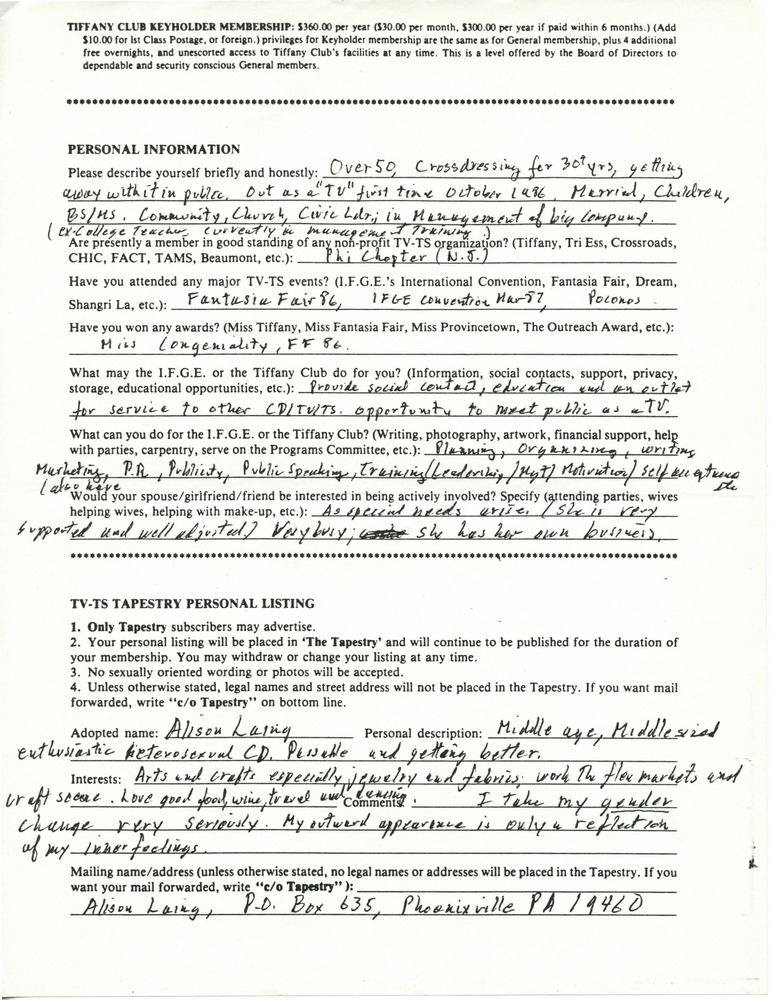 TIFFANY CLUB KEYHOLDER MEMBERSHIP: $360.00 per year ($30.00 per month, $300.00 per year if paid within 6 months.) (Add
$10.00 for 1st Class Postage, or foreign.) privileges for Keyholder membership are the same as for General membership, plus 4 additional
free overnights, and unescorted access to Tiffany Club's facilities at any time. This is a level offered by the Board of Directors to
dependable and security conscious General members.
PERSONAL INFORMATION
Please describe yourself briefly and honestly: Over 50, Crossdressing for 30+ yrs, getting
away with it in public. Out as a "TV" first time October 1986. Married, Children,
BS/MS. Community, Church, Civic Ldr; in Management of big company.
(ex-College Teacher, currently in management Training.)
Are presently a member in good standing of any non-profit TV-TS organization? (Tiffany, Tri Ess, Crossroads,
CHIC, FACT, TAMS, Beaumont, etc.): Phi Chapter (N.J.)
Have you attended any major TV-TS events? (I.F.G.E.'s International Convention, Fantasia Fair, Dream,
Shangri La, etc.): Fantasia Fair 86, IFGE convention Mar 87, Poconos.
Have you won any awards? (Miss Tiffany, Miss Fantasia Fair, Miss Provincetown, The Outreach Award, etc.):
Miss Congeniality, FF 86.
What may the I.F.G.E. or the Tiffany Club do for you? (Information, social contacts, support, privacy,
storage, educational opportunities, etc.): Provide social contact, education and an outlet
for service to other CD/TV/TS. opportunity to meet public as a TV.
What can you do for the I.F.G.E. or the Tiffany Club? (Writing, photography, artwork, financial support, help
with parties, carpentry, serve on the Programs Committee, etc.): Planning, Organizing, writing
Marketing, P.R., Publicity, Public Speaking, Training/Leadership/Mgt/Motivation/Self acceptance
(also have
Would your spouse/girlfriend/friend be interested in being actively involved? Specify (attending parties, wives
helping wives, helping with make-up, etc.): As special needs arise. (She is very
supported and well adjusted) Very busy; she has her own business.
TV-TS TAPESTRY PERSONAL LISTING
1. Only Tapestry subscribers may advertise.
2. Your personal listing will be placed in 'The Tapestry' and will continue to be published for the duration of
your membership. You may withdraw or change your listing at any time.
3. No sexually oriented wording or photos will be accepted.
4. Unless otherwise stated, legal names and street address will not be placed in the Tapestry. If you want mail
forwarded, write "c/o Tapestry" on bottom line.
Adopted name: Alison Laing Personal description: Middle age, Middle sized
enthusiastic heterosexual CD. Passable and getting better.
Interests: Arts and crafts especially jewelry and fabrics. work the flea markets and
craft scene. Love good food, wine, travel and dancing. Comments: I take my gender
change very seriously. My outward appearance is only a reflection
of my inner feelings.
Mailing name/address (unless otherwise stated, no legal names or addresses will be placed in the Tapestry. If you
want your mail forwarded, write "c/o Tapestry"):
Alison Laing, P.O. Box 635, Phoenixville PA 19460